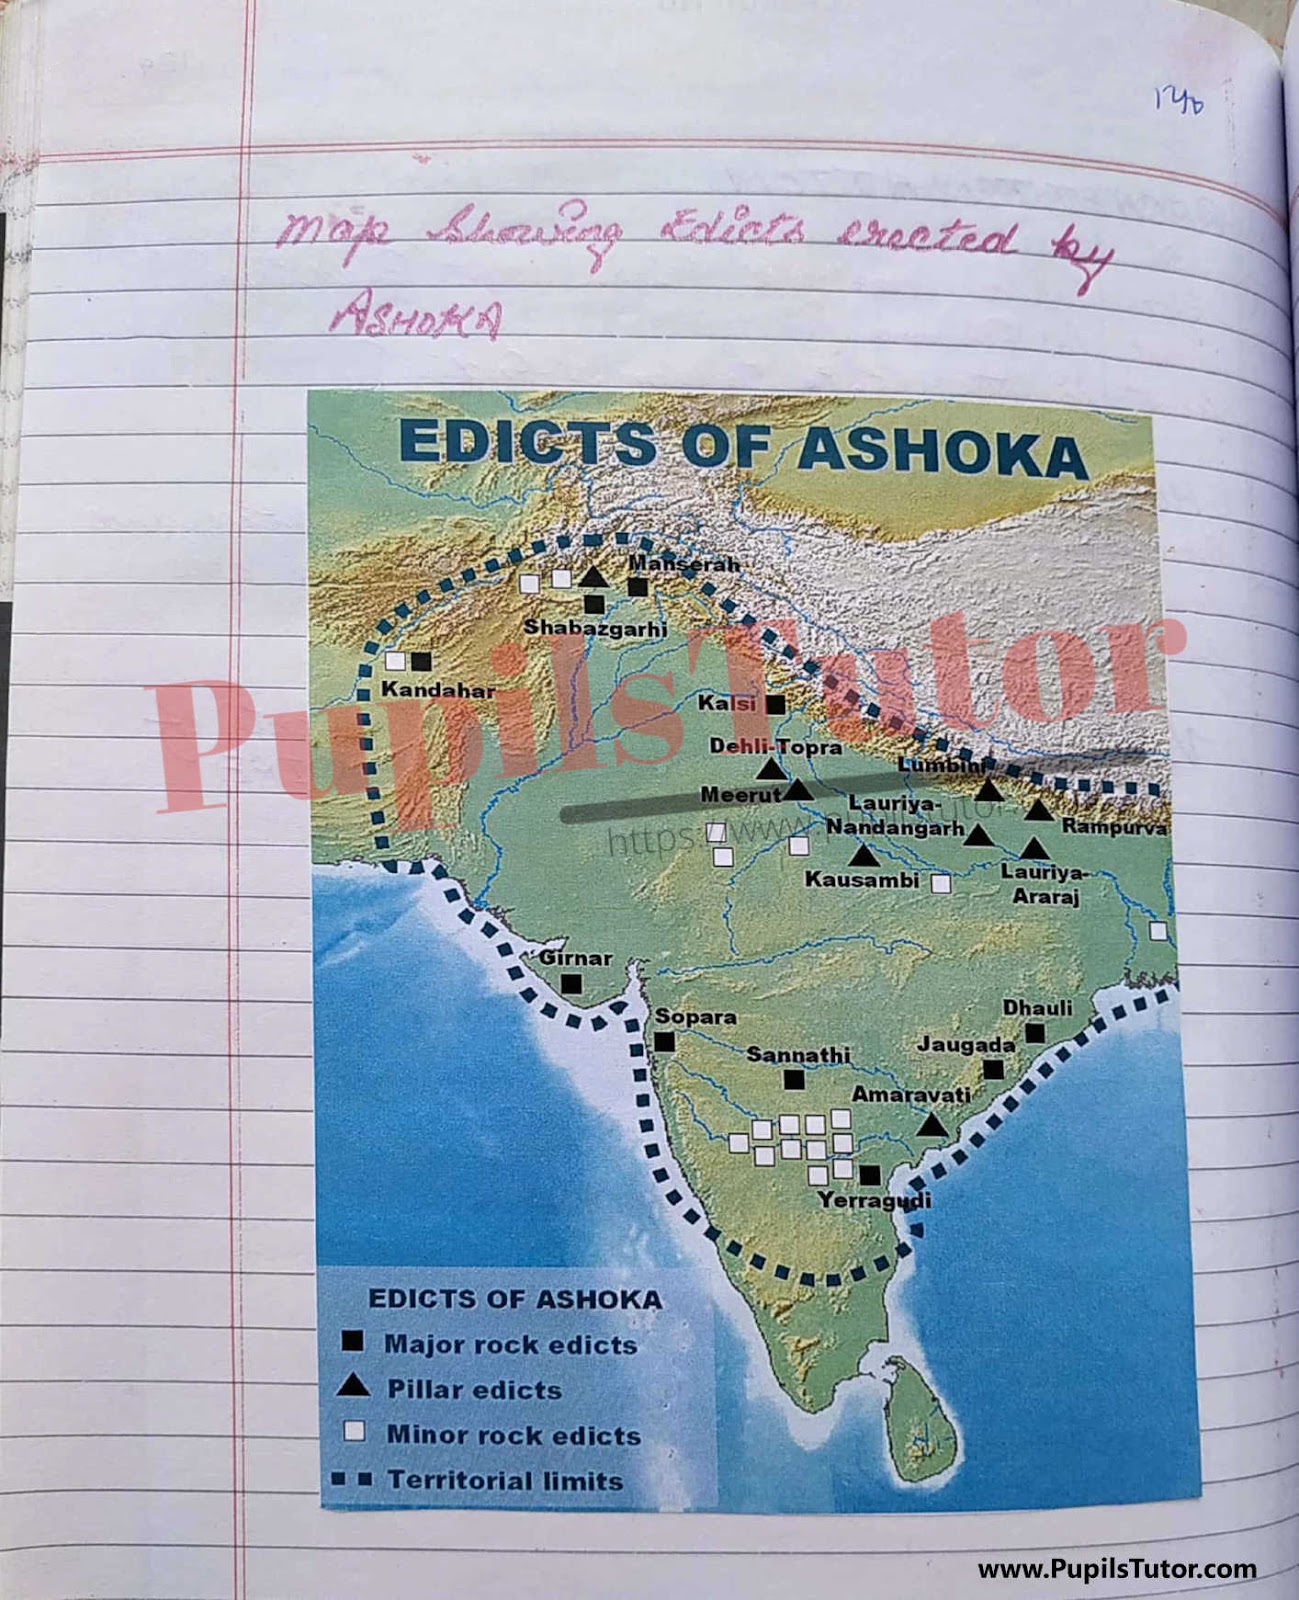 Map Showing Edicts erected by
ASHOKA
EDICTS OF ASHOKA
Manserah
Shabazgarhi
Kandahar
Kalsi
Dehli-Topra
Lumbini
Meerut
Lauriya-
Nandangarh
Rampurva
Kausambi
Lauriya-
Araraj
Girnar
Sopara
Dhauli
Jaugada
Sannathi
Amaravati
Yerragudi
EDICTS OF ASHOKA
Major rock edicts
Pillar edicts
Minor rock edicts
Territorial limits
PupilsTutor
www.PupilsTutor.com